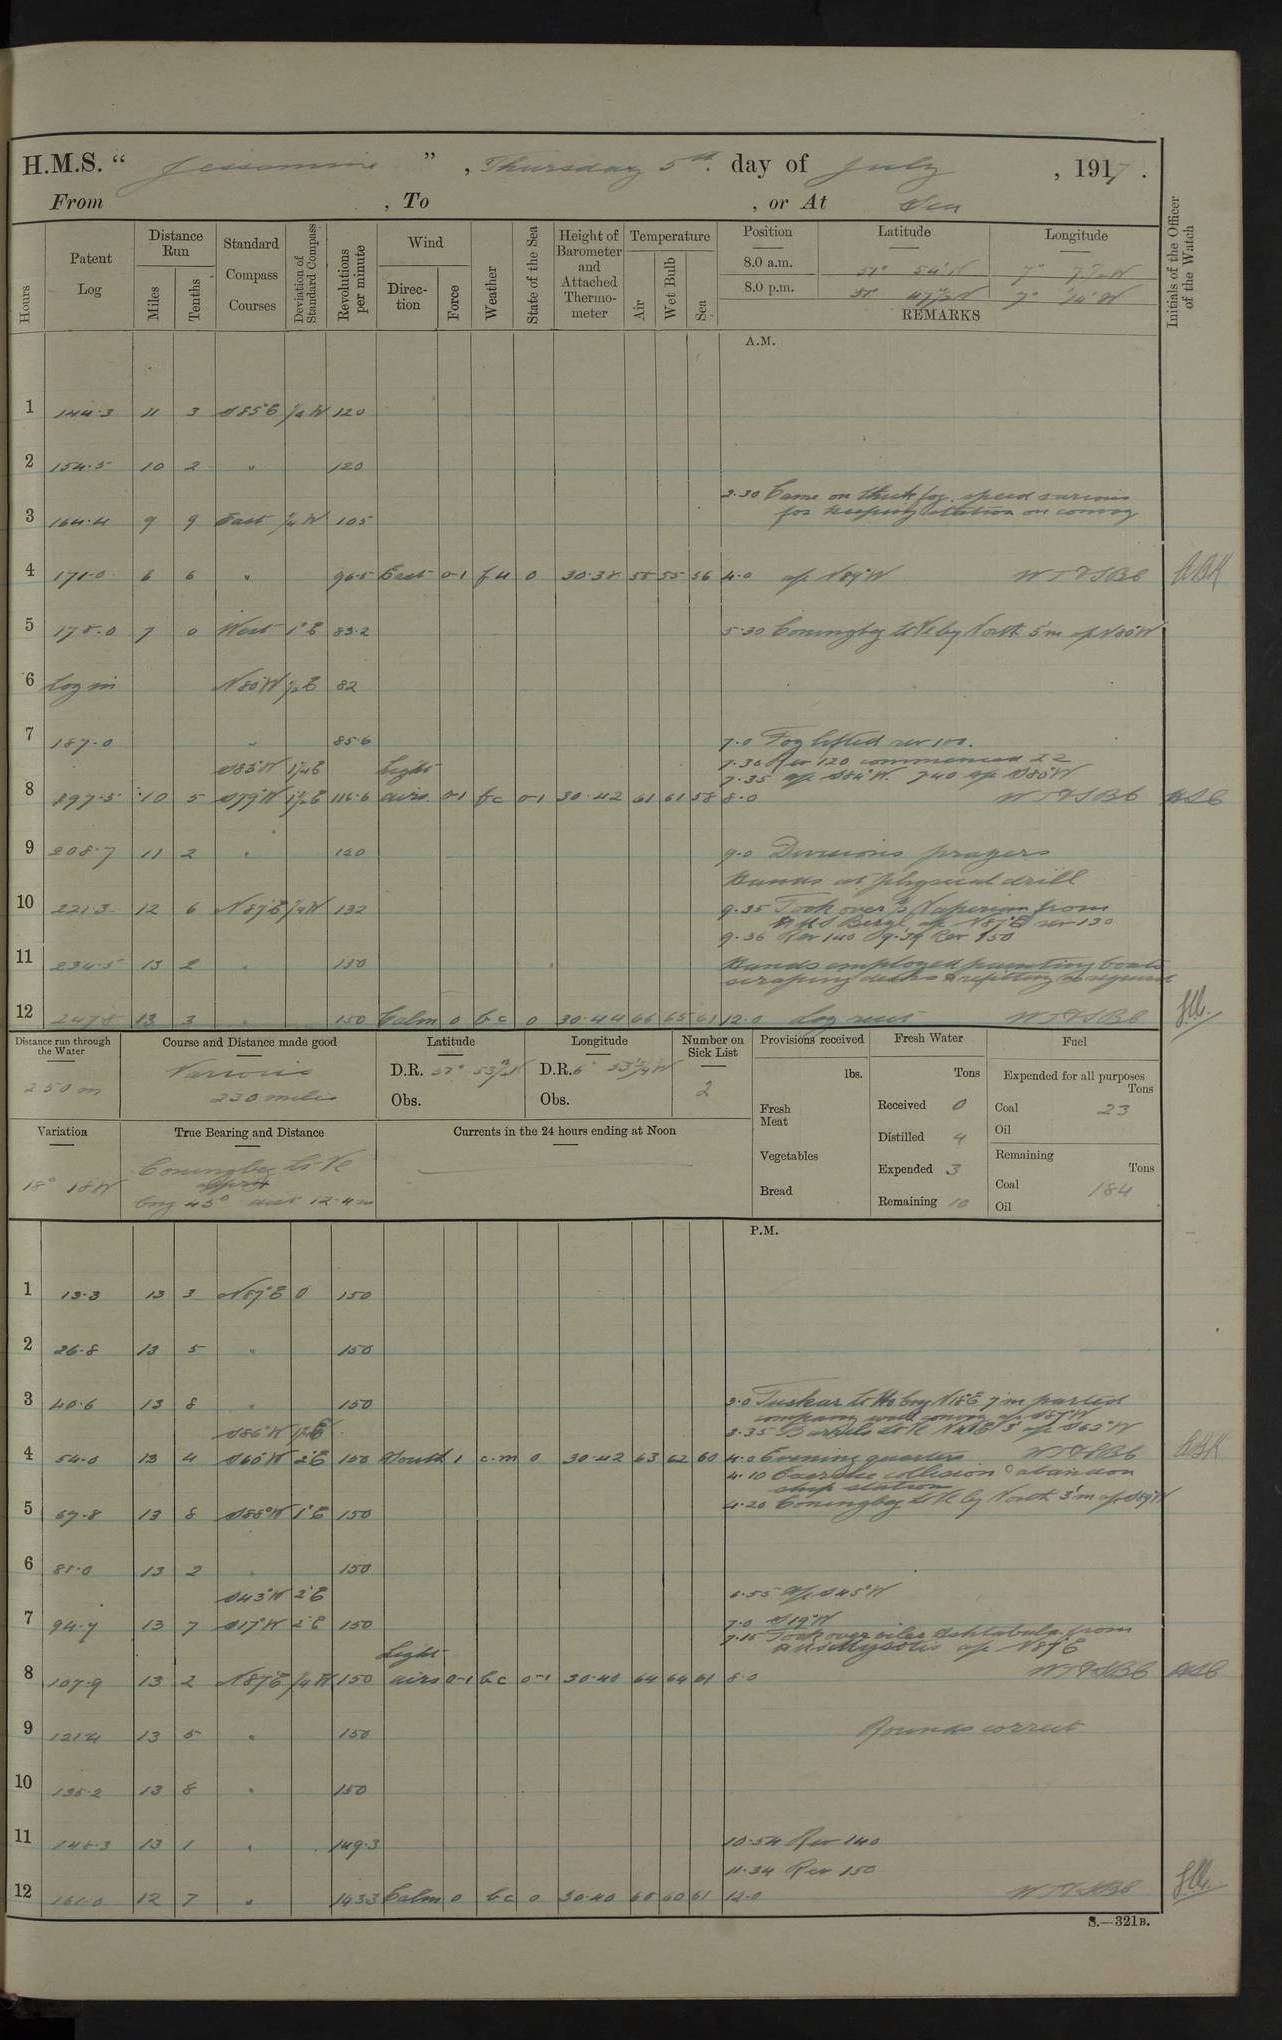 H.M.S. " Jessamine " , Thursday 5th day of July , 1917 .
From , To , or At Sea
Hours
Patent Log
Distance Run
Miles
Tenths
Standard Compass Courses
Deviation of Standard Compass
Revolutions per minute
Wind
Direction
Force
Weather
State of the Sea
Height of Barometer and Attached Thermometer
Temperature
Air
Wet Bulb
Sea
Position
Latitude
Longitude
8.0 a.m. 51° 54' N 7° W
8.0 p.m. 51° 47½ N 7° 14' W
REMARKS
Initials of the Officer of the Watch
A.M.
1 144.3 11 3 S85°E ¼W 120
2 154.5 10 2 " 120
2.30 Came on thick fog. speed various
for keeping station on convoy
3 164.4 9 9 East ¼W 105
4 171.0 6 6 " 96.5 East 0-1 f 0 30.38 55 55 56 4.0 a/c N89°W WT&SBC ABK
5 178.0 7 0 West 1°E 83.2 5.30 Coningbeg Lt Ve by North 5'm a/c N80°W
6 Log in N80W ½E 82
7 187.0 " 85.6 7.0 Fog lifted rev 100.
S83°W 1¼E Light 7.30 Rev 120 commenced ZZ
7.35 a/c S84°W. 7.40 a/c S80°W
8 197.5 10 5 S79°W 1½E 116.6 airs 0-1 fc 0-1 30.42 61 61 58 8.0 WT&SBC
9 208.7 11 2 " 120 9.0 Divisions prayers
Hands at physical drill
10 221.3 12 6 N87°E ¼W 132 9.35 Took over from
HMS Beryl a/c N87°E rev 130
9.36 Rev 140 9.39 Rev 150
11 234.5 13 2 " 150 Hands employed painting boats
scraping decks & refitting as required
12 247.8 13 3 " 150 Calm 0 bc 0 30.44 66 65 61 12.0 Log reset WT&SBC
Distance run through the Water
250 m
Course and Distance made good
Various
230 miles
Latitude
D.R. 51° 53½ N
Obs.
Longitude
D.R. 6° 53¼ W
Obs.
Number on Sick List
2
Provisions received
lbs.
Fresh Meat
Vegetables
Bread
Fresh Water
Tons
Received 0
Distilled 4
Expended 3
Remaining 10
Fuel
Expended for all purposes
Tons
Coal 23
Oil
Remaining
Tons
Coal 184
Oil
Variation
18° 18W
True Bearing and Distance
Coningbeg Lt Ve
brg 45° dist 12.4m
Currents in the 24 hours ending at Noon
P.M.
1 13.3 13 3 N87°E 0 150
2 26.8 13 5 " 150
3 40.6 13 8 " 150 3.0 Tuskar Lt Ho brg N18°E 7'm parted
company with convoy a/c S87°W
S86°W 1½E 3.35 Barrels Lt Ve 3' a/c S63°W
4 54.0 13 4 S60°W 2°E 150 South 1 c.m 0 30.42 63 62 60 4.0 Evening quarters WT&SBC ABK
4.10 Exercise collision & abandon
ship station
4.20 Coningbeg Lt Ve by North 3'm a/c S89°W
5 67.8 13 8 S88°W 1°E 150
6 81.0 13 2 " 150
S43°W 2°E 6.55 a/c S45°W
7 94.7 13 7 S17°W 2°E 150 7.0 S19°W
7.15 Took over oiler Ashtabula from
Light HMS Myosotis a/c N87°E
8 107.9 13 2 N87°E ¼W 150 airs 0-1 bc 0-1 30.40 64 64 61 8.0 WT&SBC
9 121.4 13 5 " 150 Rounds correct
10 135.2 13 8 " 150
11 148.3 13 1 " 149.3 10.54 Rev 140
11.34 Rev 150
12 161.0 12 7 " 143.3 Calm 0 bc 0 30.40 60 61 12.0 WT&SBC
S.—321B.